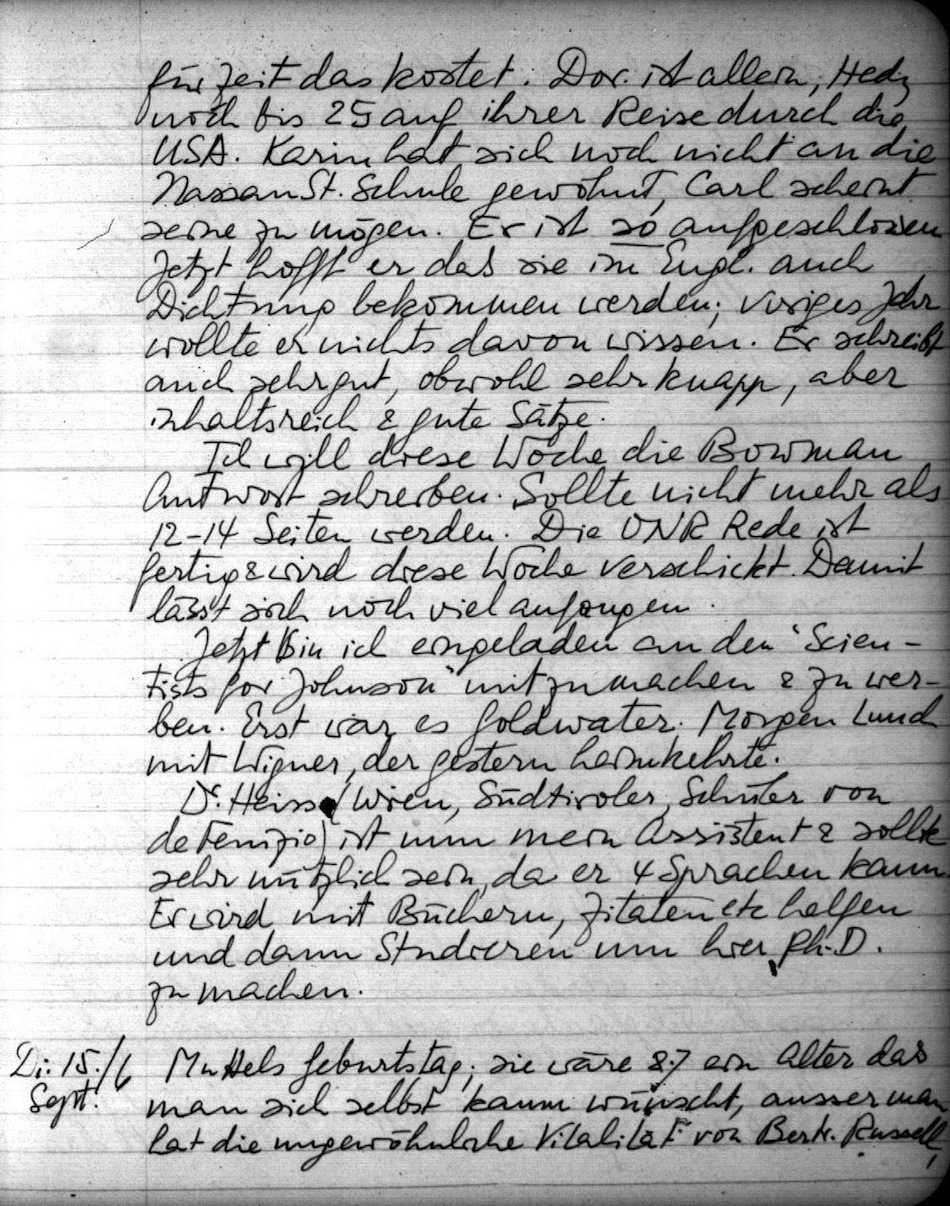 für Zeit das kostet. Dor. ist allein, Hedy
noch bis 25 auf ihrer Reise durch die
USA. Karin hat sich noch nicht an die
Nassau St. Schule gewöhnt, Carl scheint
seine zu mögen. Er ist so aufgeschlossen
Jetzt hofft er das sie im Engl. auch
Dichtung bekommen werden; voriges Jahr
wollte er nichts davon wissen. Er schreibt
auch sehr gut, obwohl sehr knapp, aber
inhaltsreich & gute Sätze.
Ich will diese Woche die Bowman
Antwort schreiben. Sollte nicht mehr als
12-14 Seiten werden. Die ONR Rede ist
fertig & wird diese Woche verschickt. Damit
lässt sich noch viel anfangen.
Jetzt bin ich eingeladen an den "Scien-
tists for Johnson" mitzumachen & zu wer-
ben. Erst war es Goldwater. Morgen Lunch
mit Wigner, der gestern heimkehrte.
Dr. Heiss (Wien, Südtiroler, Schüler von
deFenizio) ist nun mein Assistent & sollte
sehr nützlich sein, da er 4 Sprachen kann.
Er wird mit Büchern, Zitaten etc helfen
und dann Studieren um hier Ph.D.
zu machen.
Di. 15./6 Muttels Geburtstag; sie wäre 87 ein Alter das
Sept. man sich selbst kaum wünscht, ausser man
hat die ungewöhnliche Vitalität von Bertr. Russell,